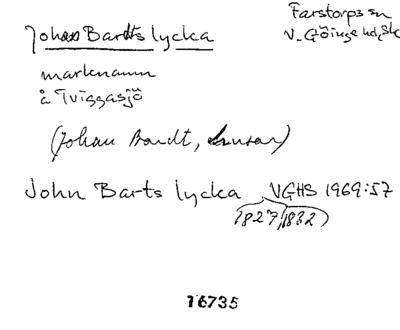 Johan Bardts lycka
Farstorps sn
V. Göinge hd, Sk
marknamn
å Tviggasjö
(Johan Bardt,
John Barts lycka VGHS 1969:57
1827, 1832)
16735